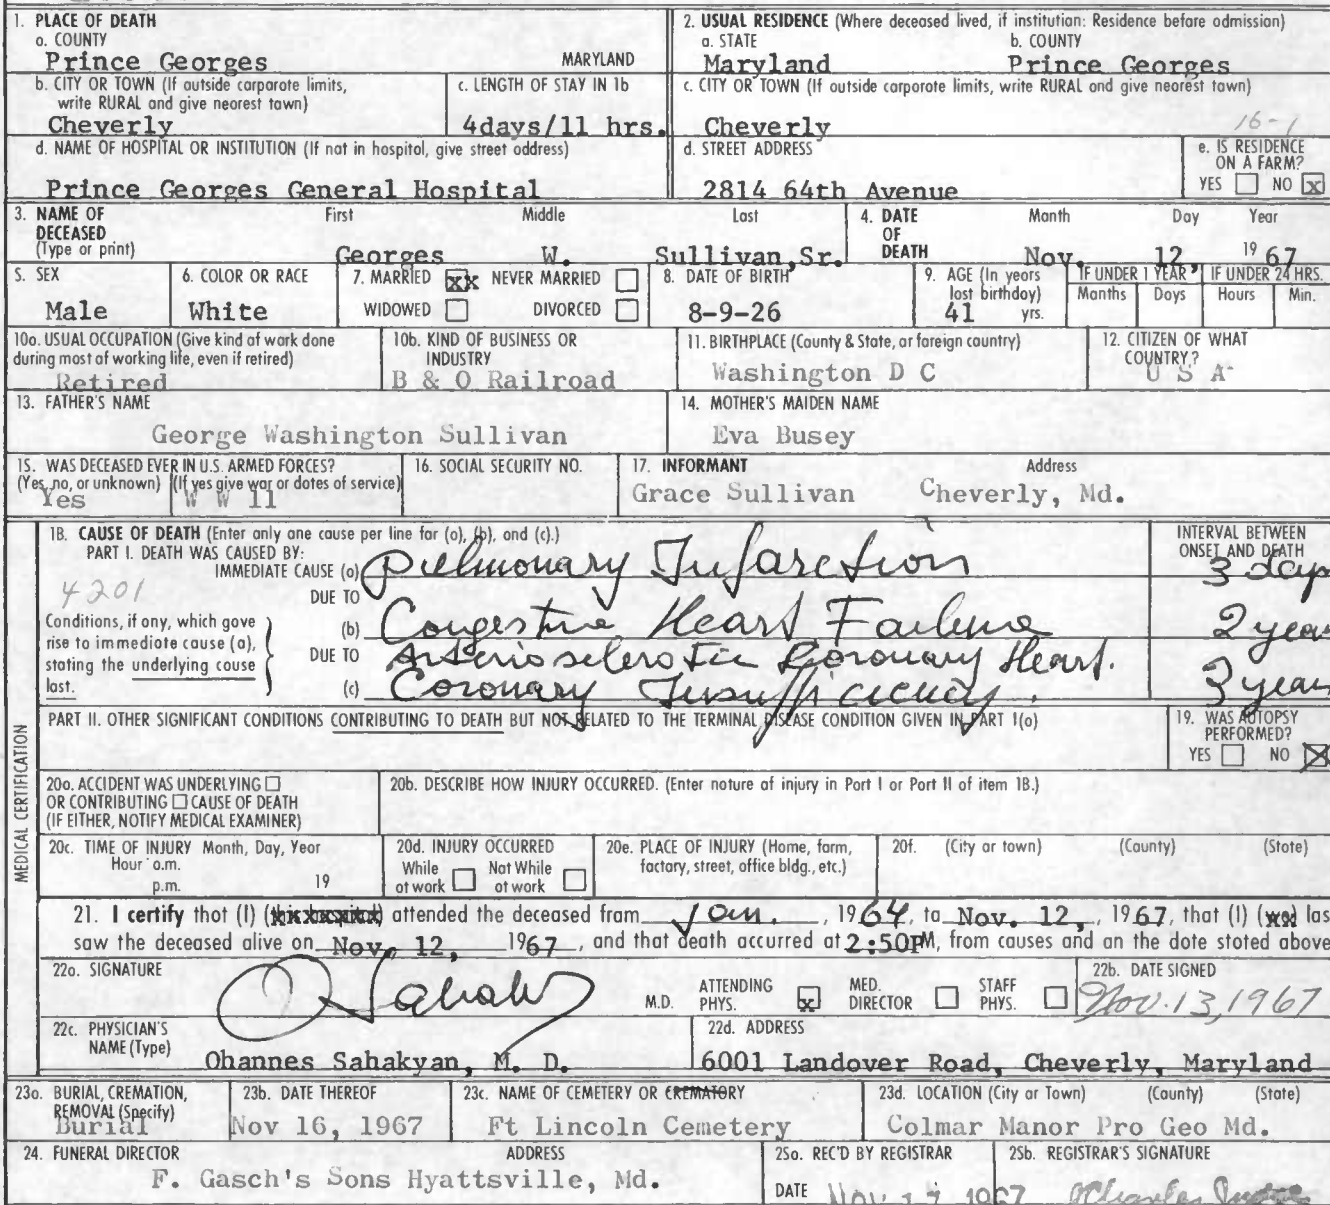 1. PLACE OF DEATH
a. COUNTY
Prince Georges MARYLAND
2. USUAL RESIDENCE (Where deceased lived, if institution: Residence before admission)
a. STATE b. COUNTY
Maryland Prince Georges
b. CITY OR TOWN (If outside corporate limits,
write RURAL and give nearest town)
Cheverly
c. LENGTH OF STAY IN 1b
4days/11 hrs.
c. CITY OR TOWN (If outside corporate limits, write RURAL and give nearest town)
Cheverly
16-1
d. NAME OF HOSPITAL OR INSTITUTION (If not in hospital, give street address)
Prince Georges General Hospital
d. STREET ADDRESS
2814 64th Avenue
e. IS RESIDENCE
ON A FARM?
YES NO x
3. NAME OF
DECEASED
(Type or print)
First Middle Last
Georges W. Sullivan,Sr.
4. DATE
OF
DEATH
Month Day Year
Nov. 12, 19 67
5. SEX
Male
6. COLOR OR RACE
White
7. MARRIED xx NEVER MARRIED
WIDOWED DIVORCED
8. DATE OF BIRTH
8-9-26
9. AGE (In years
last birthday)
41 yrs.
IF UNDER 1 YEAR
Months Days
IF UNDER 24 HRS.
Hours Min.
10a. USUAL OCCUPATION (Give kind of work done
during most of working life, even if retired)
Retired
10b. KIND OF BUSINESS OR
INDUSTRY
B & O Railroad
11. BIRTHPLACE (County & State, or foreign country)
Washington D C
12. CITIZEN OF WHAT
COUNTRY?
U S A
13. FATHER'S NAME
George Washington Sullivan
14. MOTHER'S MAIDEN NAME
Eva Busey
15. WAS DECEASED EVER IN U.S. ARMED FORCES?
(Yes, no, or unknown) (If yes give war or dates of service)
Yes W W 11
16. SOCIAL SECURITY NO.
17. INFORMANT Address
Grace Sullivan Cheverly, Md.
MEDICAL CERTIFICATION
18. CAUSE OF DEATH (Enter only one cause per line for (a), (b), and (c).)
PART I. DEATH WAS CAUSED BY:
IMMEDIATE CAUSE (a) Pulmonary Infarction
INTERVAL BETWEEN
ONSET AND DEATH
3 days
4201
DUE TO
Conditions, if any, which gave
rise to immediate cause (a),
stating the underlying cause
last.
(b) Congestive Heart Failure 2 years
DUE TO Arteriosclerotic Coronary Heart.
(c) Coronary Insufficiency. 3 years
PART II. OTHER SIGNIFICANT CONDITIONS CONTRIBUTING TO DEATH BUT NOT RELATED TO THE TERMINAL DISEASE CONDITION GIVEN IN PART I(a)
19. WAS AUTOPSY
PERFORMED?
YES NO X
20a. ACCIDENT WAS UNDERLYING
OR CONTRIBUTING CAUSE OF DEATH
(IF EITHER, NOTIFY MEDICAL EXAMINER)
20b. DESCRIBE HOW INJURY OCCURRED. (Enter nature of injury in Part I or Part II of item 18.)
20c. TIME OF INJURY Month, Day, Year
Hour a.m.
p.m. 19
20d. INJURY OCCURRED
While Not While
at work at work
20e. PLACE OF INJURY (Home, farm,
factory, street, office bldg., etc.)
20f. (City or town) (County) (State)
21. I certify that (I) (this hospital) attended the deceased from Jan., 1964, to Nov. 12, 1967, that (I) (we) las
saw the deceased alive on Nov. 12, 1967, and that death occurred at 2:50PM, from causes and on the date stated above
22a. SIGNATURE
O Sahaky M.D.
ATTENDING
PHYS. x
MED.
DIRECTOR
STAFF
PHYS.
22b. DATE SIGNED
Nov. 13, 1967
22c. PHYSICIAN'S
NAME (Type)
Ohannes Sahakyan, M. D.
22d. ADDRESS
6001 Landover Road, Cheverly, Maryland
23a. BURIAL, CREMATION,
REMOVAL (Specify)
Burial
23b. DATE THEREOF
Nov 16, 1967
23c. NAME OF CEMETERY OR CREMATORY
Ft Lincoln Cemetery
23d. LOCATION (City or Town) (County) (State)
Colmar Manor Pro Geo Md.
24. FUNERAL DIRECTOR ADDRESS
F. Gasch's Sons Hyattsville, Md.
25a. REC'D BY REGISTRAR
DATE NOV 17 1967
25b. REGISTRAR'S SIGNATURE
Charles